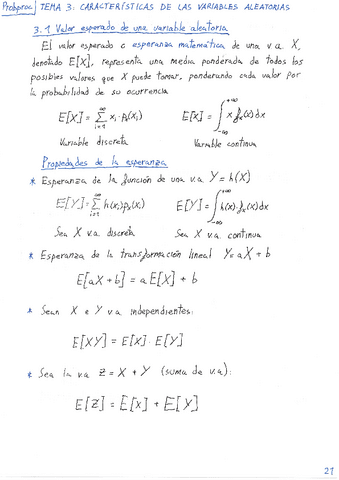 Pro&proc TEMA 3: CARACTERÍSTICAS DE LAS VARIABLES ALEATORIAS
3.1 Valor esperado de una variable aleatoria
El valor esperado o esperanza matemática de una v.a. X,
denotado E[X], representa una media ponderada de todos los
posibles valores que X puede tomar, ponderando cada valor por
la probabilidad de su ocurrencia
E[X] = ∑_{i=1}^{∞} x_i · p_x(x_i) E[X] = ∫_{-∞}^{+∞} x f_x(x) dx
Variable discreta Variable continua
Propiedades de la esperanza
* Esperanza de la función de una v.a Y = h(X)
E[Y] = ∑_{i=1}^{∞} h(x_i) p_x(x_i) E[Y] = ∫_{-∞}^{+∞} h(x) · f_x(x) dx
Sea X v.a. discreta Sea X v.a. continua
* Esperanza de la transformación lineal Y = aX + b
E[aX + b] = a E[X] + b
* Sean X e Y v.a independientes:
E[XY] = E[X] · E[Y]
* Sea la v.a Z = X + Y (suma de v.a):
E[Z] = E[X] + E[Y]
21